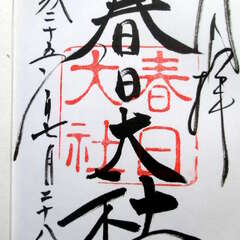 拝
春日大社
春日
大社
成二十五年七月二十八